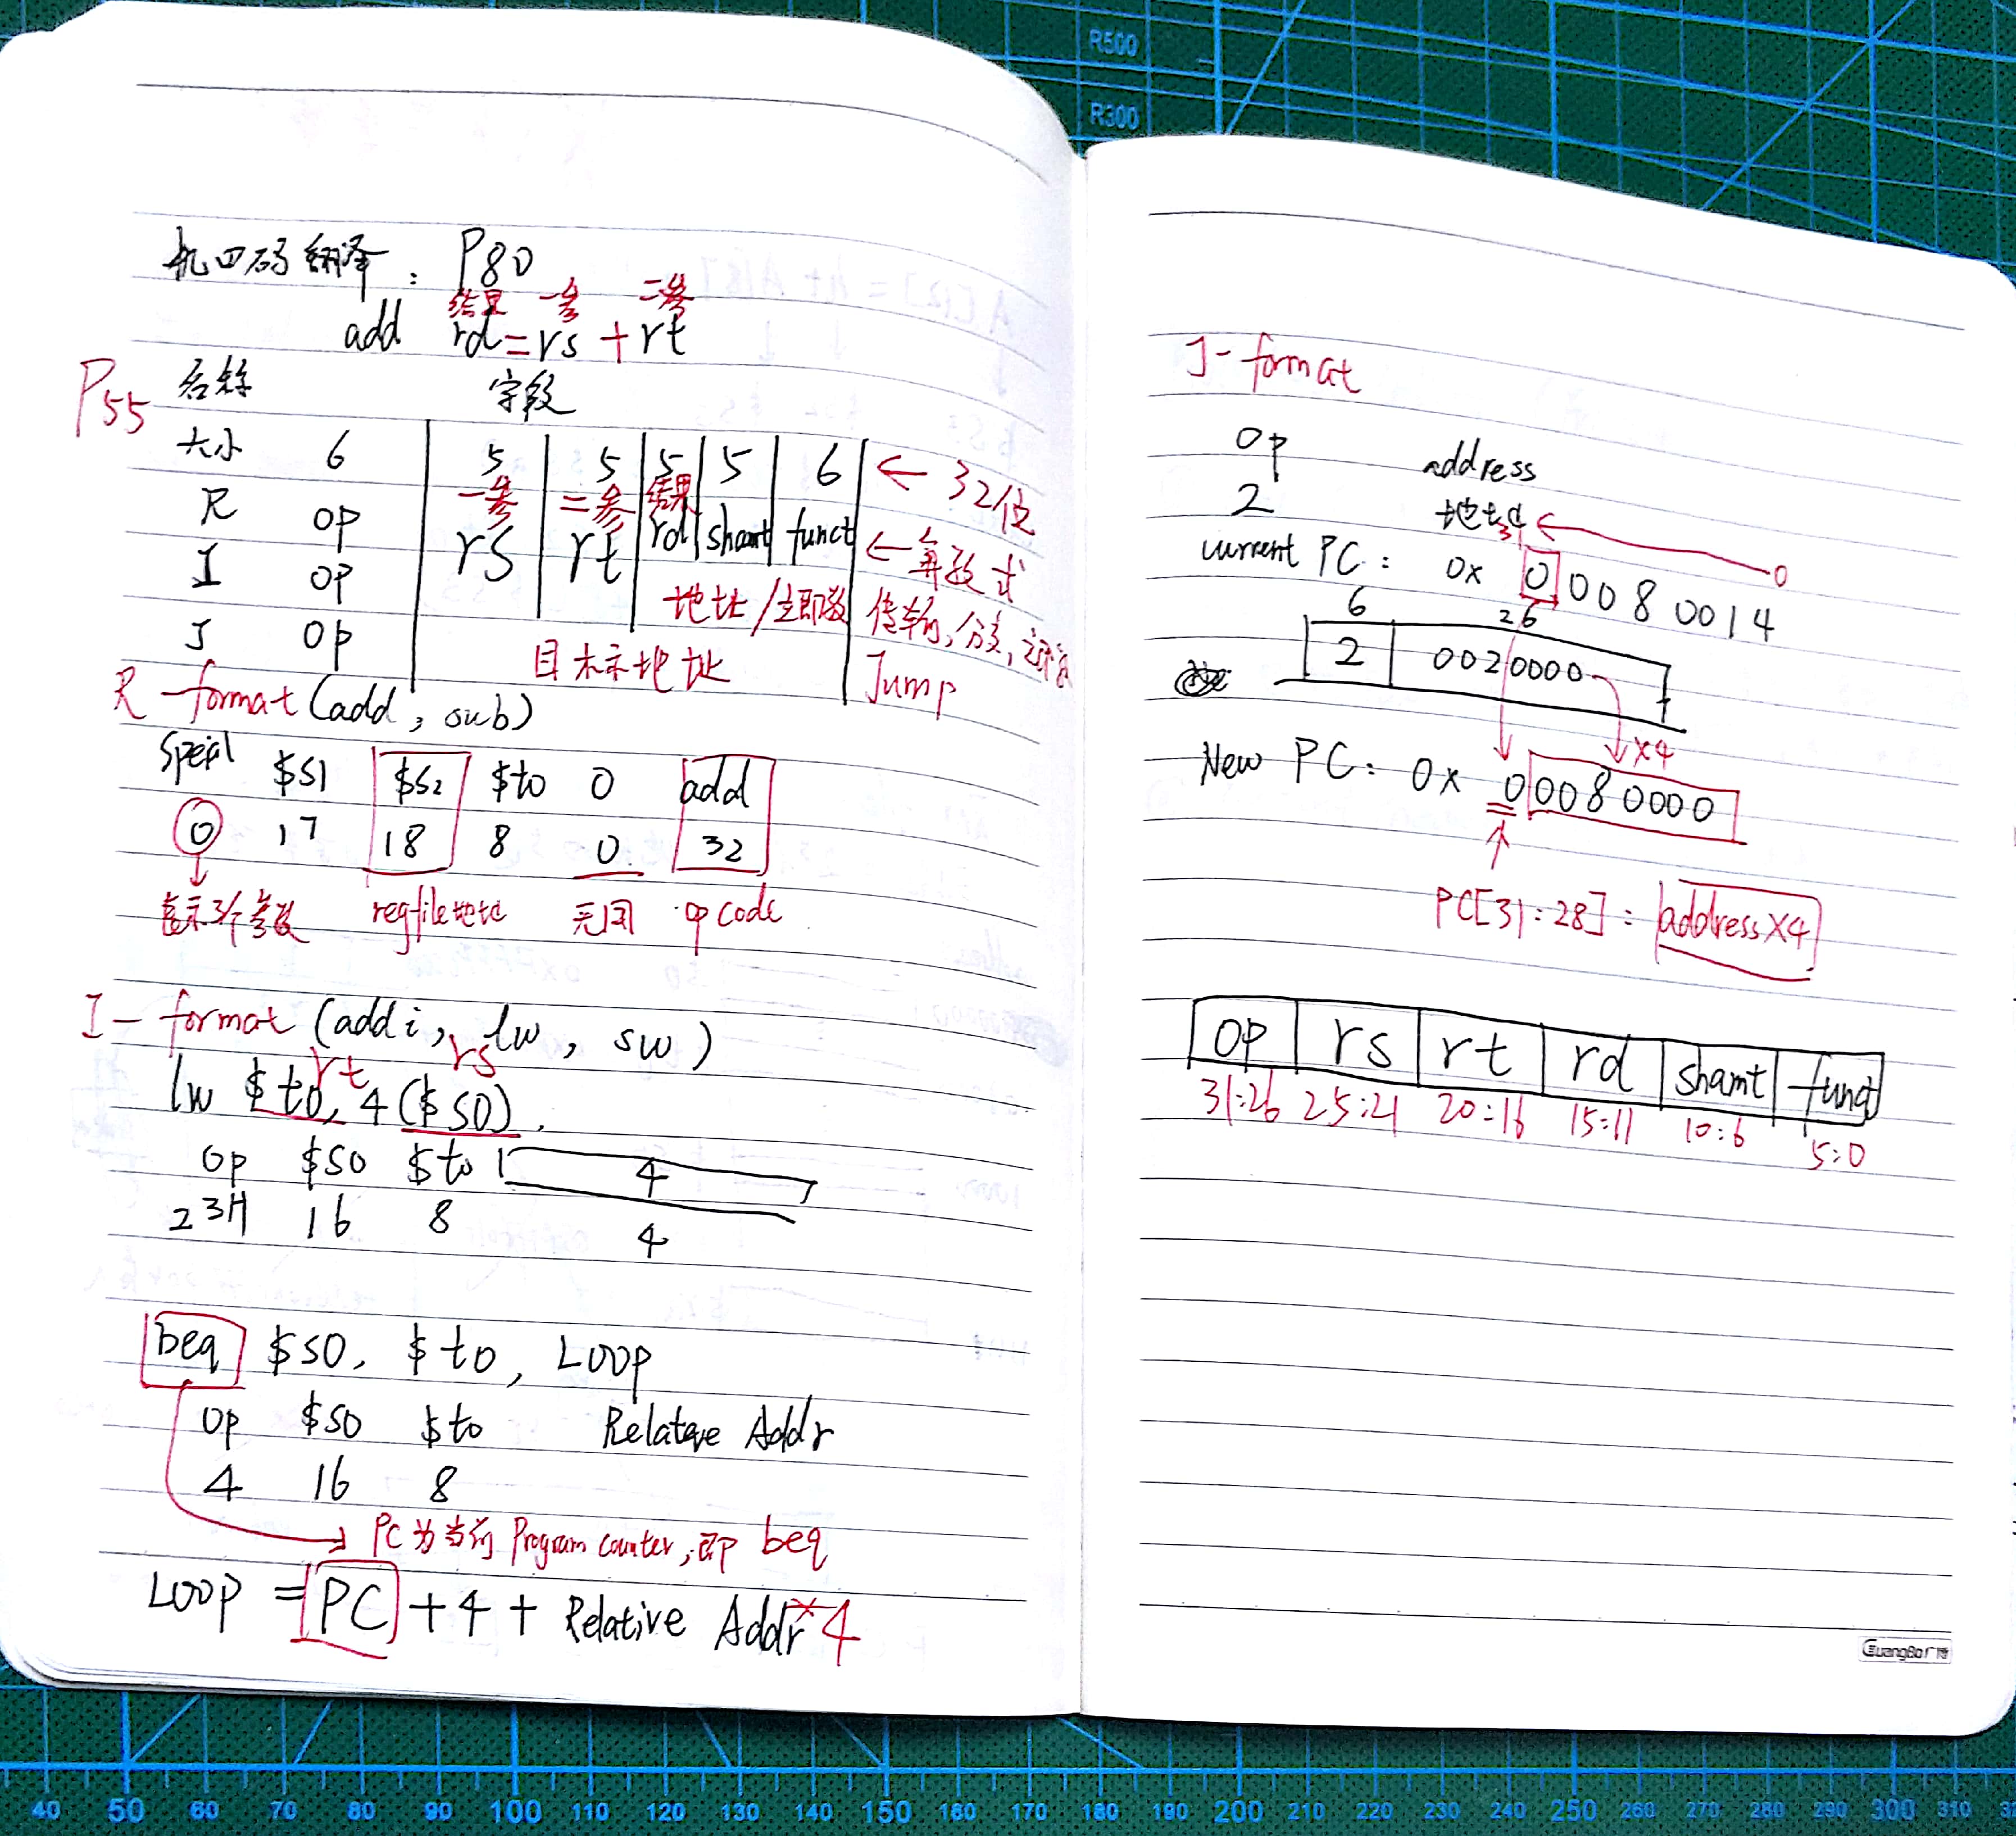 机四码翻译: P80
结果 一参 二参
add rd=rs+rt
P55 名称 字段
大小 6 5 5 5 5 6 ← 32位
一参 二参 结果
R op rs rt rd shamt funct ← 算数式
I op 地址/立即数 传输,分支,
J op 目标地址 Jump
R-format (add, sub)
$s1 $s2 $t0 0 add
0 17 18 8 0 32
表示3个参数 regfile地址 无因 opcode
I-format (addi, lw, sw)
rt rs
lw $t0, 4($s0)
op $s0 $t0 4
23H 16 8 4
beq $s0, $t0, LOOP
op $s0 $t0 Relative Addr
4 16 8
PC为当前Program counter,即beq
LOOP = PC + 4 + Relative Addr*4
J-format
op address
2 地址
31 0
current PC: 0x 0008 0014
6 26
2 0020000
×4
New PC: 0x 00080000
PC[31:28]: address×4
op rs rt rd shamt funct
31:26 25:21 20:16 15:11 10:6 5:0
GuangBo广博
R500
R300
40 50 60 70 80 90 100 110 120 130 140 150 160 170 180 190 200 210 220 230 240 250 260 270 280 290 300 310